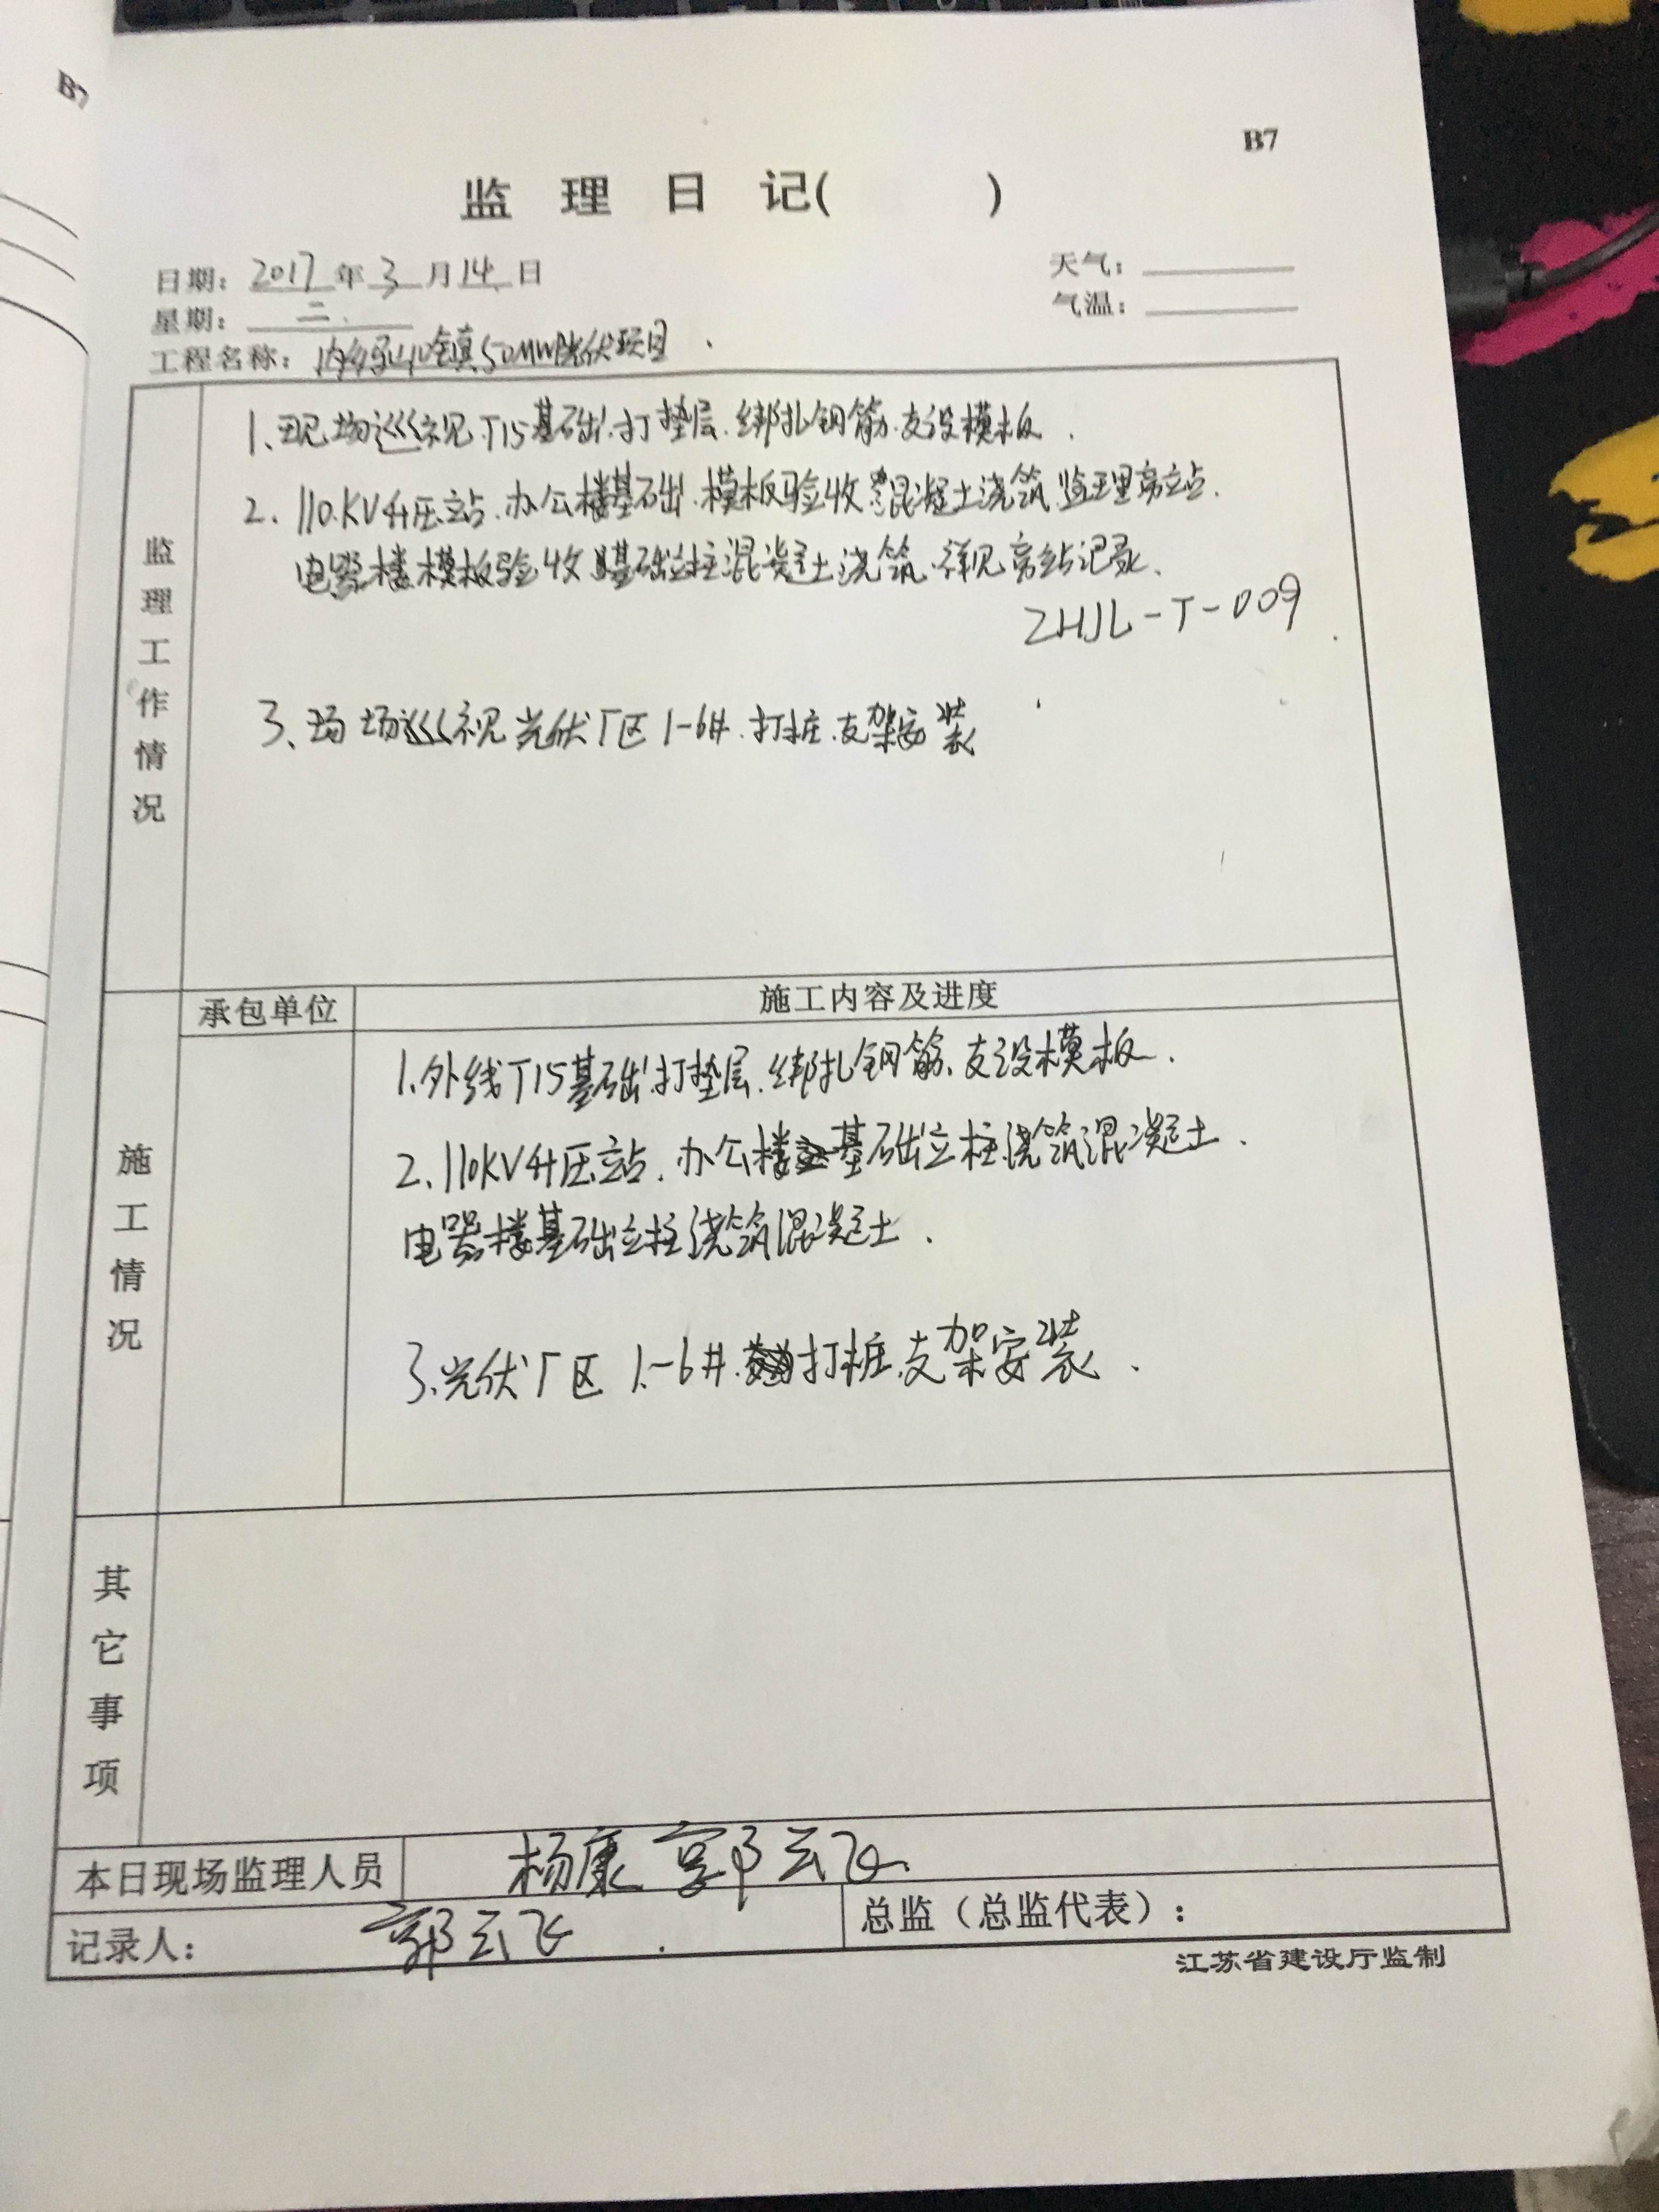 B7
B7
监理日记(　　)
日期：2017年3月14日
天气：
星期：二
气温：
工程名称：内乡县 镇50MWP光伏项目
监理工作情况
1、现场巡视T15基础.打垫层.绑扎钢筋.支设模板.
2、110KV升压站.办公楼基础.模板验收.混凝土浇筑.监理旁站.
电器楼.模板验收.基础立柱混凝土浇筑.详见旁站记录.
ZHJL-T-009
3、场场巡视光伏厂区1-6#.打桩.支架安装
施工情况
承包单位
施工内容及进度
1.外线T15基础.打垫层.绑扎钢筋.支设模板.
2、110KV升压站.办公楼基础立柱浇筑混凝土.
电器楼基础立柱浇筑混凝土.
3.光伏厂区1-6#.打桩.支架安装.
其它事项
本日现场监理人员 杨康 郭云飞.
记录人：郭云飞.
总监（总监代表）：
江苏省建设厅监制